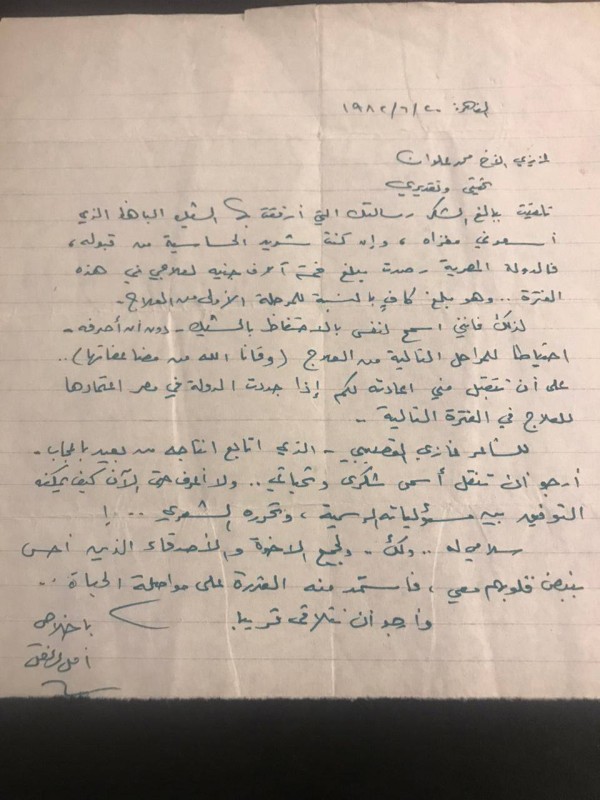 القاهرة: ١٩٨٢/٦/٢٠
عزيزي الأخ محمد علوان
تحيتي وتقديري
تلقيت ببالغ الشكر رسالتك التي أرفقت بها الشيك الباهظ الذي
أسعدني مغزاه، وإن كنت شديد الحساسية من قبوله،
فالدولة المصرية رصدت مبلغ خمسة آلاف جنيه لعلاجي في هذه
الفترة .. وهو مبلغ كافٍ بالنسبة للمرحلة الأولى من العلاج -
لذلك فإنني اسمح لنفسي بالاحتفاظ بالشيك - دون أن أصرفه -
احتياطا للمراحل التالية من العلاج (وقانا الله من مضاعفاتها) ..
على أن تتقبل مني اعادته لكم إذا جددت الدولة في مصر اعتمادها
للعلاج في الفترة التالية ..
للشاعر غازي القصيبي - الذي اتابع انتاجه من بعيد باعجاب -
أرجو أن تنقل أسمى شكري وتحياتي .. ولا أعرف حتى الآن كيف يمكنه
التوفيق بين مسؤولياته الرسمية، وتحرره الشعري .. !
سلامي له .. ولك .. ولجميع الاخوة والأصدقاء الذين أحس
بنبض قلوبهم معي، فأستمد منه القدرة على مواصلة الحياة ..
وأرجو أن نتلاقى قريبا.
باخلاص
أمل دنقل